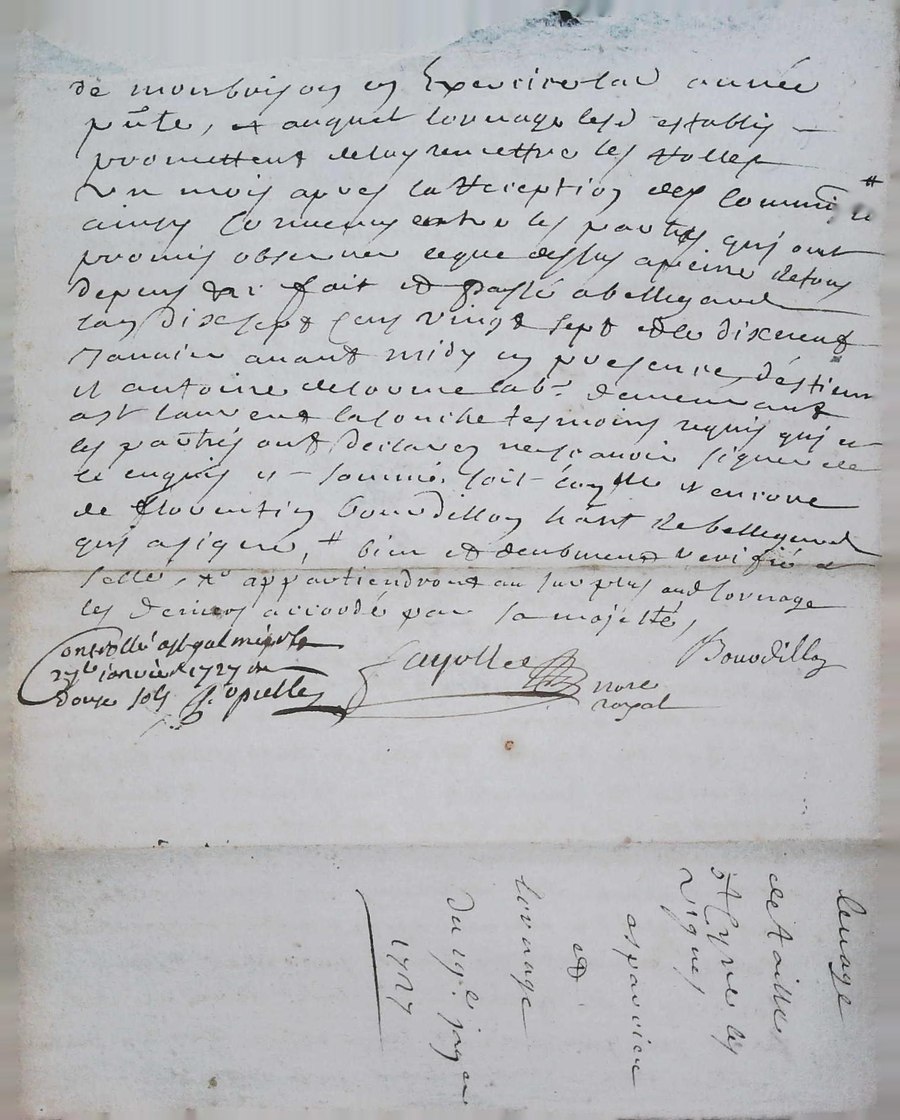 de monbrison en Exercice lad année
pñte, et auquel Lovnage lesd establis
promettent deluy remettre les Rolles
un mois apres la Reception des Comm
ainsy Convenu entre les parties quj ont
promis observer ceque dessus apeine de tous
depens fait et passé abellegarde
lan dixsept Cens vingt sept et le dixneuf
Janvier avant midy en presence d'éstienne
et antoine delorme lab.r demeurant
ast laurent lasouche tesmoins requis quj et
les parties ont declarez nescavoir signer de
ce enquis et sommé soit et encore
de florentin Bourdillon hânt de bellegarde
quj asigné, # bien et deubment verifié et
selle appartiendront au surplus aud Lovnage
les deniers accordé par sa majesté,
Controllé ast galmier le
27.e janvier 1727 Re
douze sols
fayolle
notre
royal
Bourdillon
levage
detailles
st Cyr les
vignes
aspanier
et
Lovnage
du 19.e janer
1727